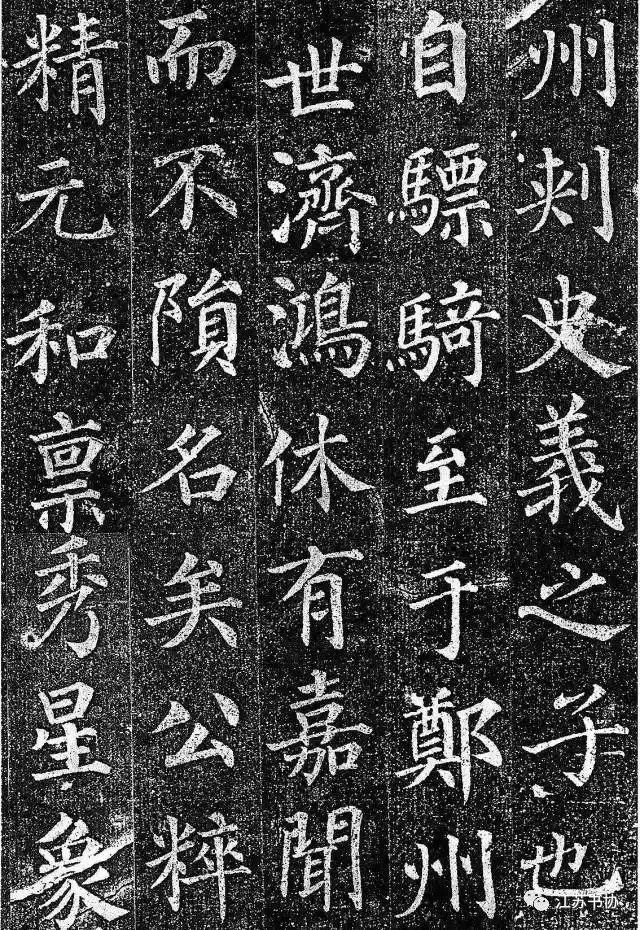 州刾史義之子也
自驃騎至于鄭州
世濟鴻休有嘉聞
而不隕名矣公粹
精元和禀秀星象
江苏书协